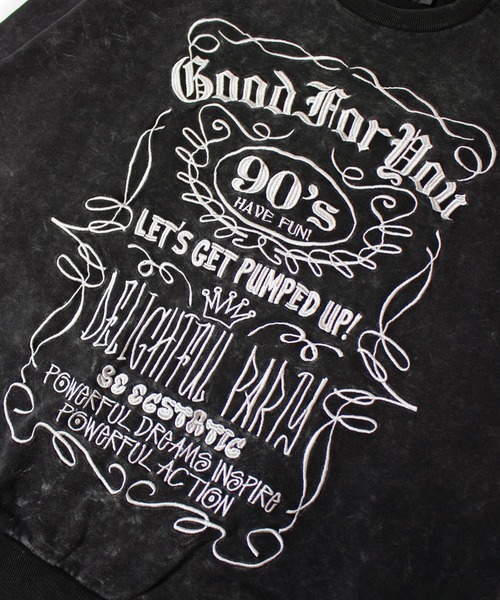 Good For You
90's
HAVE FUN!
LET'S GET PUMPED UP!
DELIGHTFUL PARTY
BE ECSTATIC
POWERFUL DREAMS INSPIRE
POWERFUL ACTION